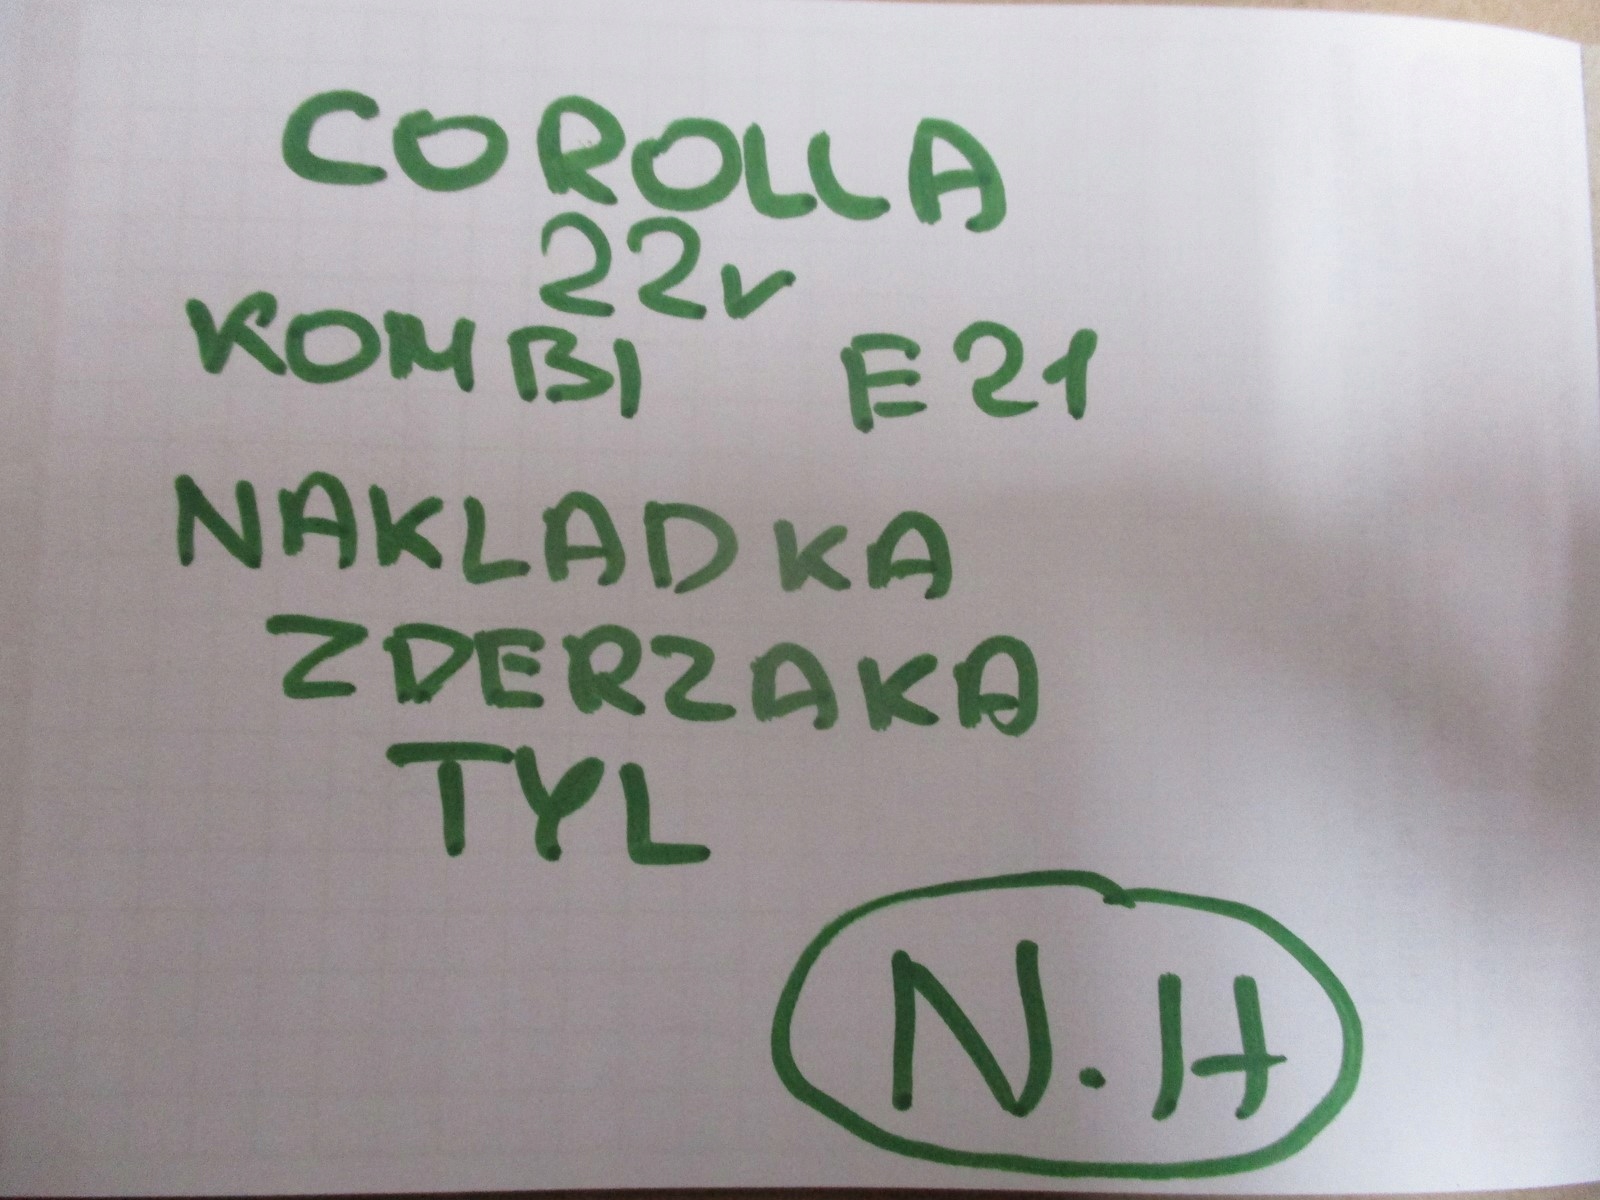 COROLLA
22r
KOMBI E21
NAKLADKA
ZDERZAKA
TYL
N.H